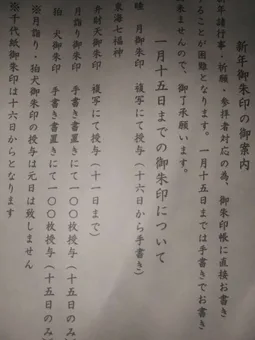 新年御朱印の御案内
年諸行事・祈願・参拝者対応の為、御朱印帳に直接お書き
ることが困難となります。一月十五日までは手書きでお書き
来ませんので、御了承願います。
一月十五日までの御朱印について
睦月御朱印 複写にて授与(十六日から手書き)
東海七福神
弁財天御朱印 複写にて授与(十一日まで)
月詣り御朱印 手書き書置きにて一〇〇枚授与(十五日のみ
狛犬御朱印 手書き書置きにて一〇〇枚授与(十五日のみ
※月詣り・狛犬御朱印の授与は元日は致しません
※千代紙御朱印は十六日からとなります